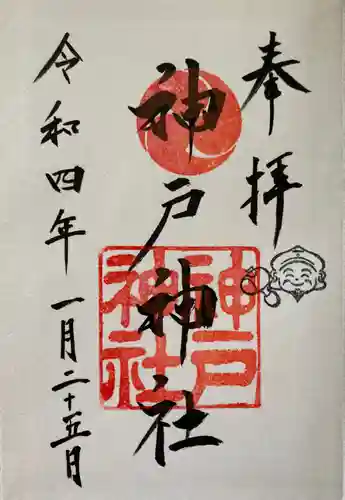 奉拝
神戸神社
神戸
神社
令和四年 一月二十五月